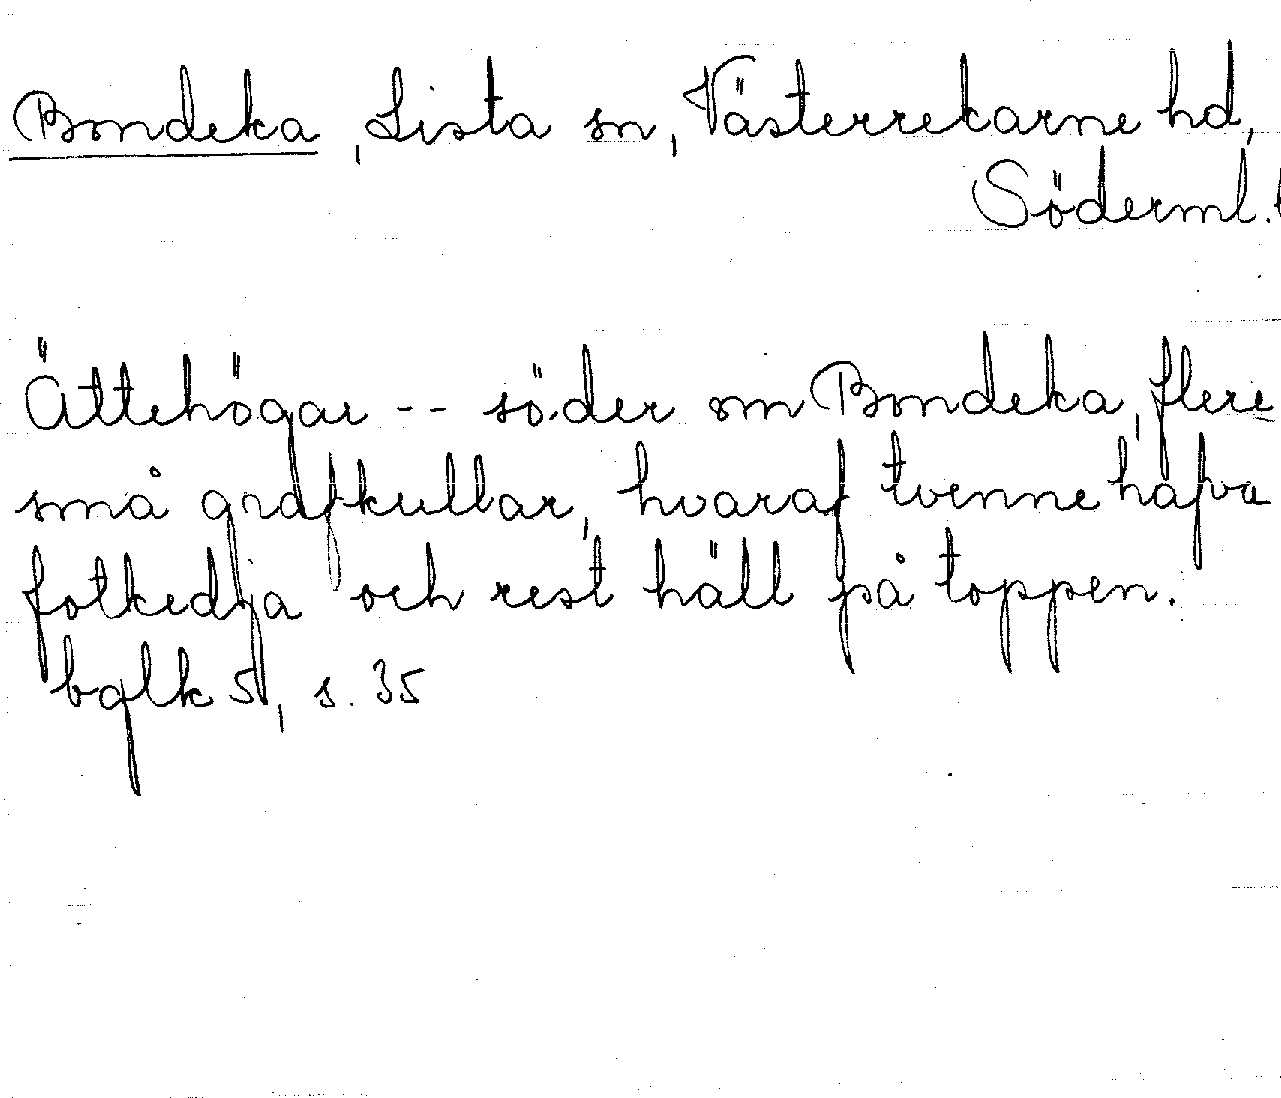 Bondeka, Lista sn, Västerrekarne hd,
Söderml.
Ättehögar -- söder om Bondeka, flere
små grafkullar, hvaraf tvenne hafva
fotkedja och rest häll på toppen.
bglk 5, s. 35